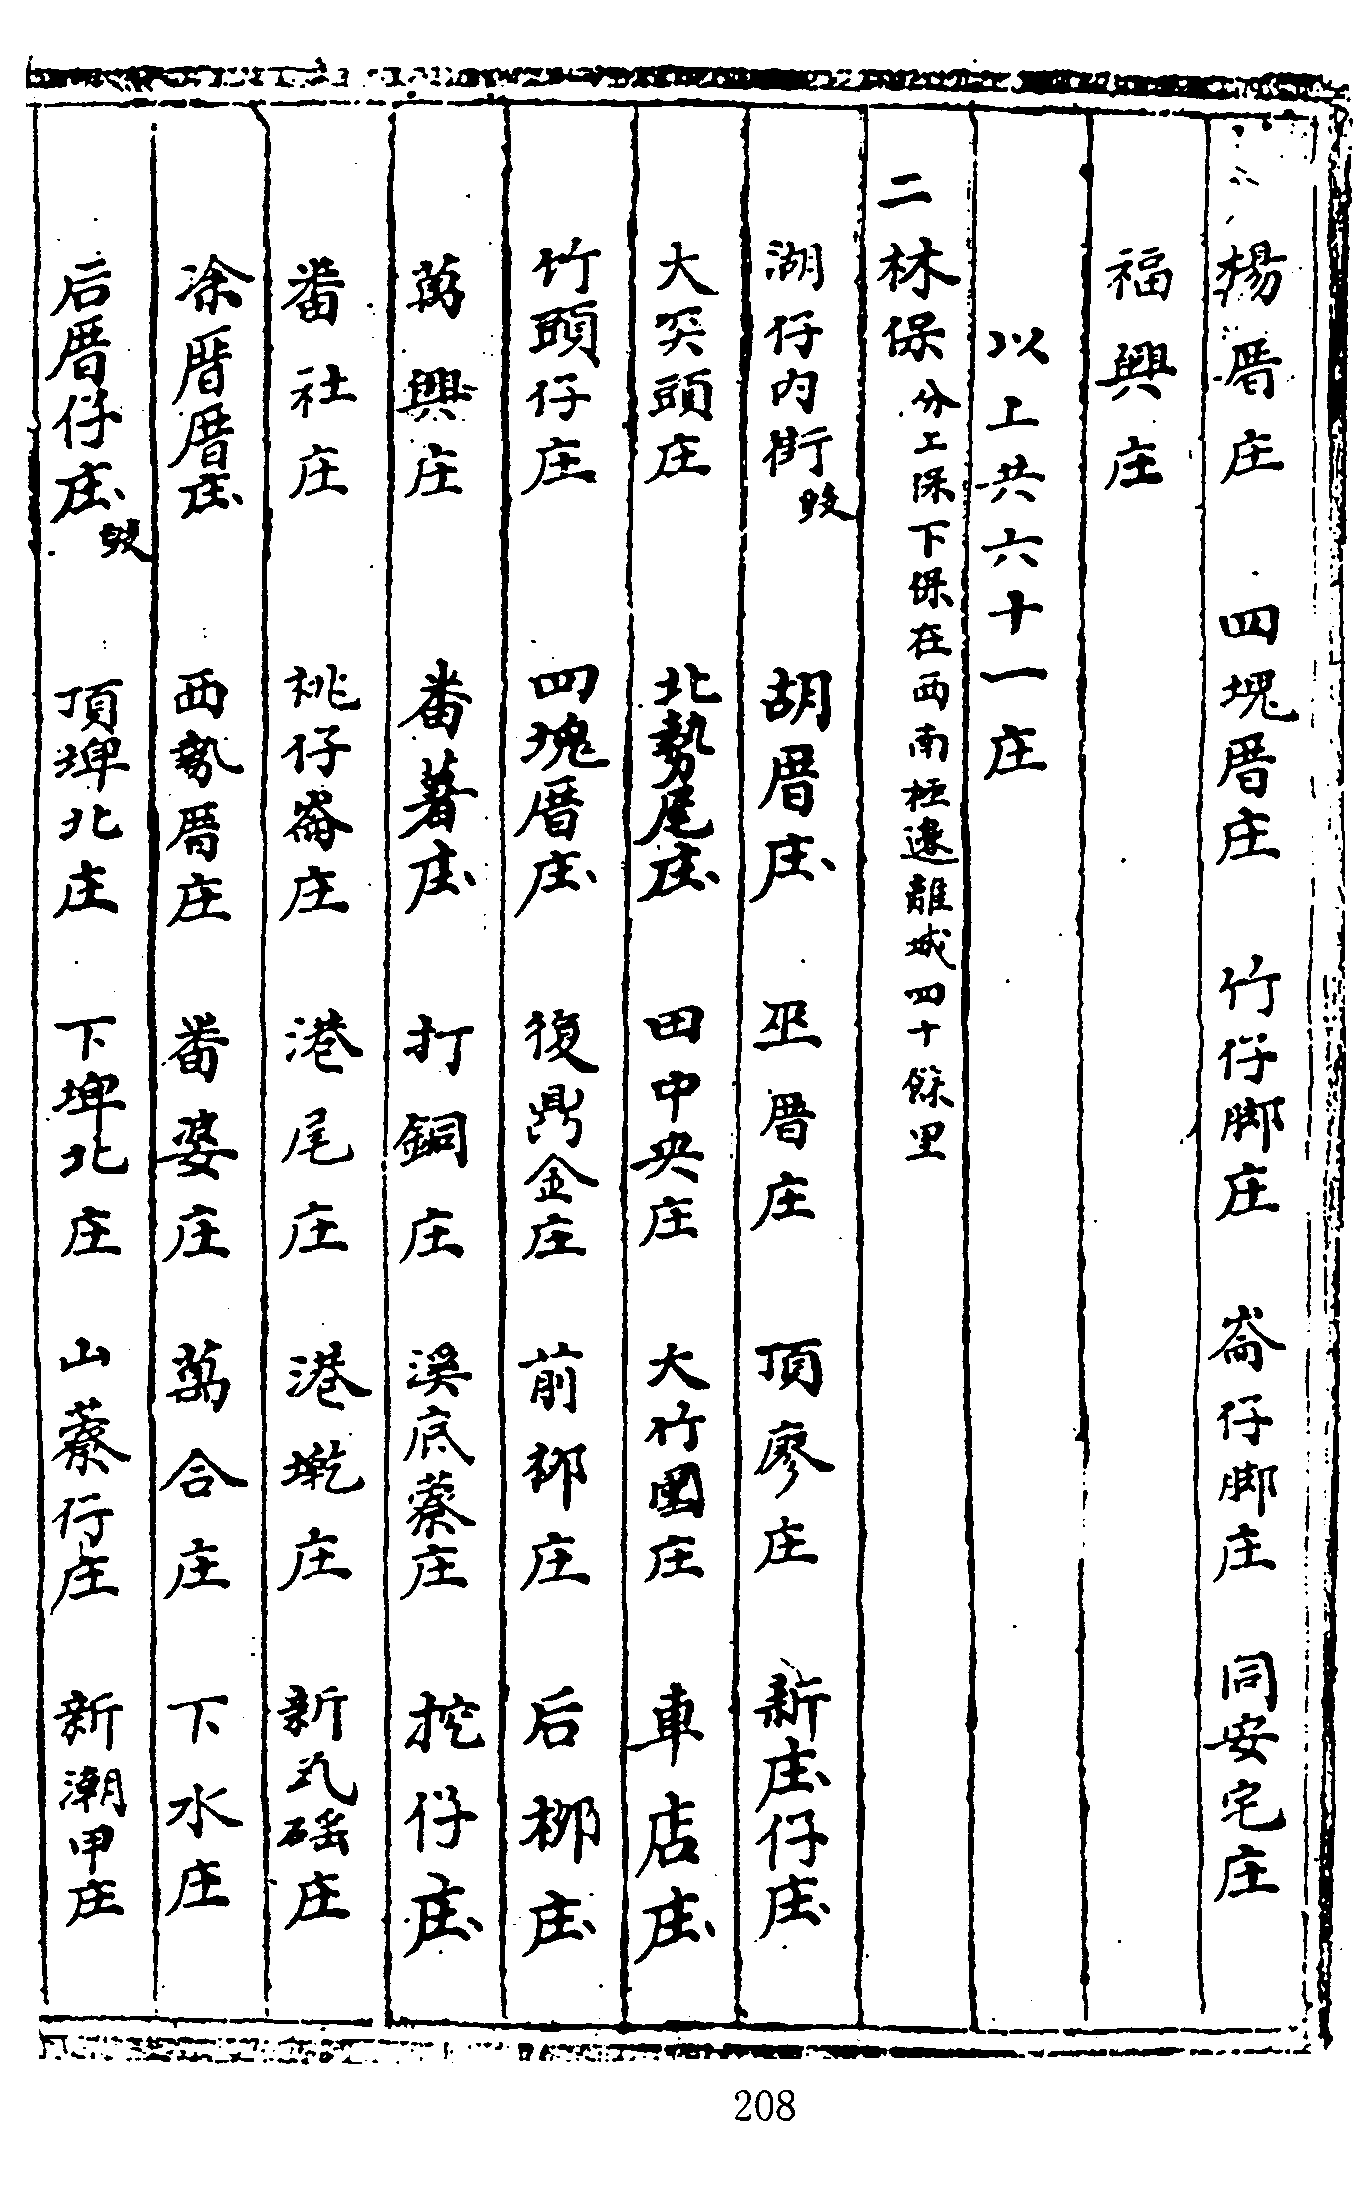 楊厝庄 四塊厝庄 竹仔脚庄 崙仔脚庄 同安宅庄
福興庄
以上共六十一庄
二林保 分上保下保在西南極邊離城四十餘里
湖仔内街 胡厝庄 巫厝庄 頂廖庄 新庄仔庄
大突頭庄 北勢尾庄 田中央庄 大竹圍庄 車店庄
竹頭仔庄 四塊厝庄 復鼎金庄 前柳庄 后柳庄
萬興庄 番薯庄 打銅庄 溪底藔庄 挖仔庄
番社庄 桃仔崙庄 港尾庄 港墘庄 新瓦磘庄
涂厝厝庄 西勢厝庄 番婆庄 萬合庄 下水庄
后厝仔庄 頂埤北庄 下埤北庄 山藔行庄 新潮甲庄
208